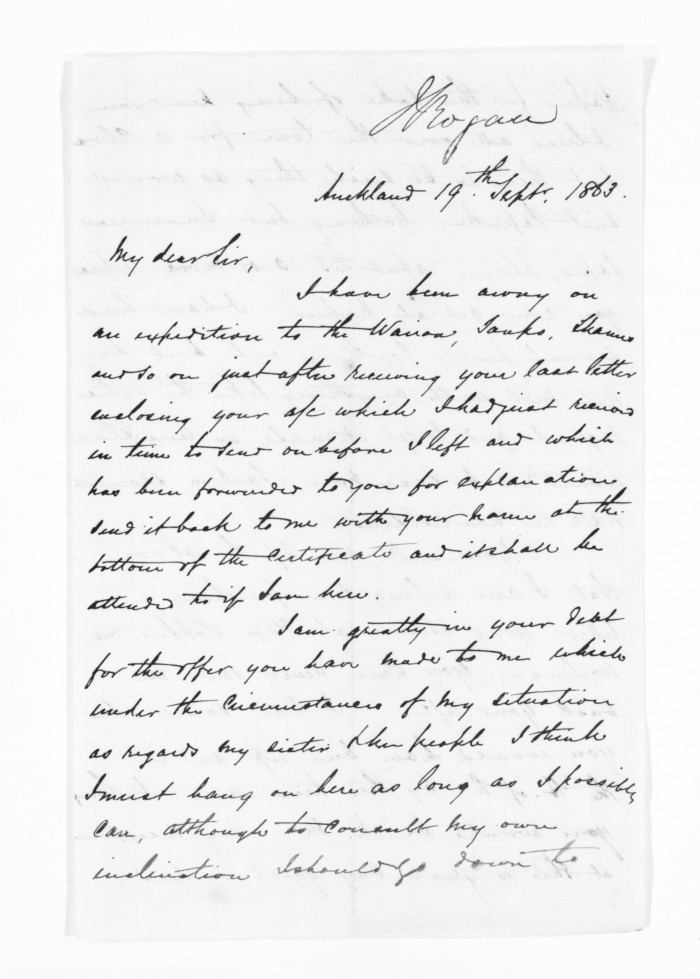 J Rogan
Auckland 19th Septr. 1863.
My dear Sir,
I have been away on
an expedition to the Wairoa, Thames
and so on just after receiving your last letter
enclosing your a/c which I had just received
in time to send on before I left and which
has been forwarded to you for explanation
send it back to me with your name at the
bottom of the certificate and it shall be
attended to if I am here.
I am greatly in your debt
for the offer you have made to me which
under the circumstances of my situation
as regards my sister & her people I think
I must hang on here as long as I possibly
can, although to consult my own
inclination I should go down to